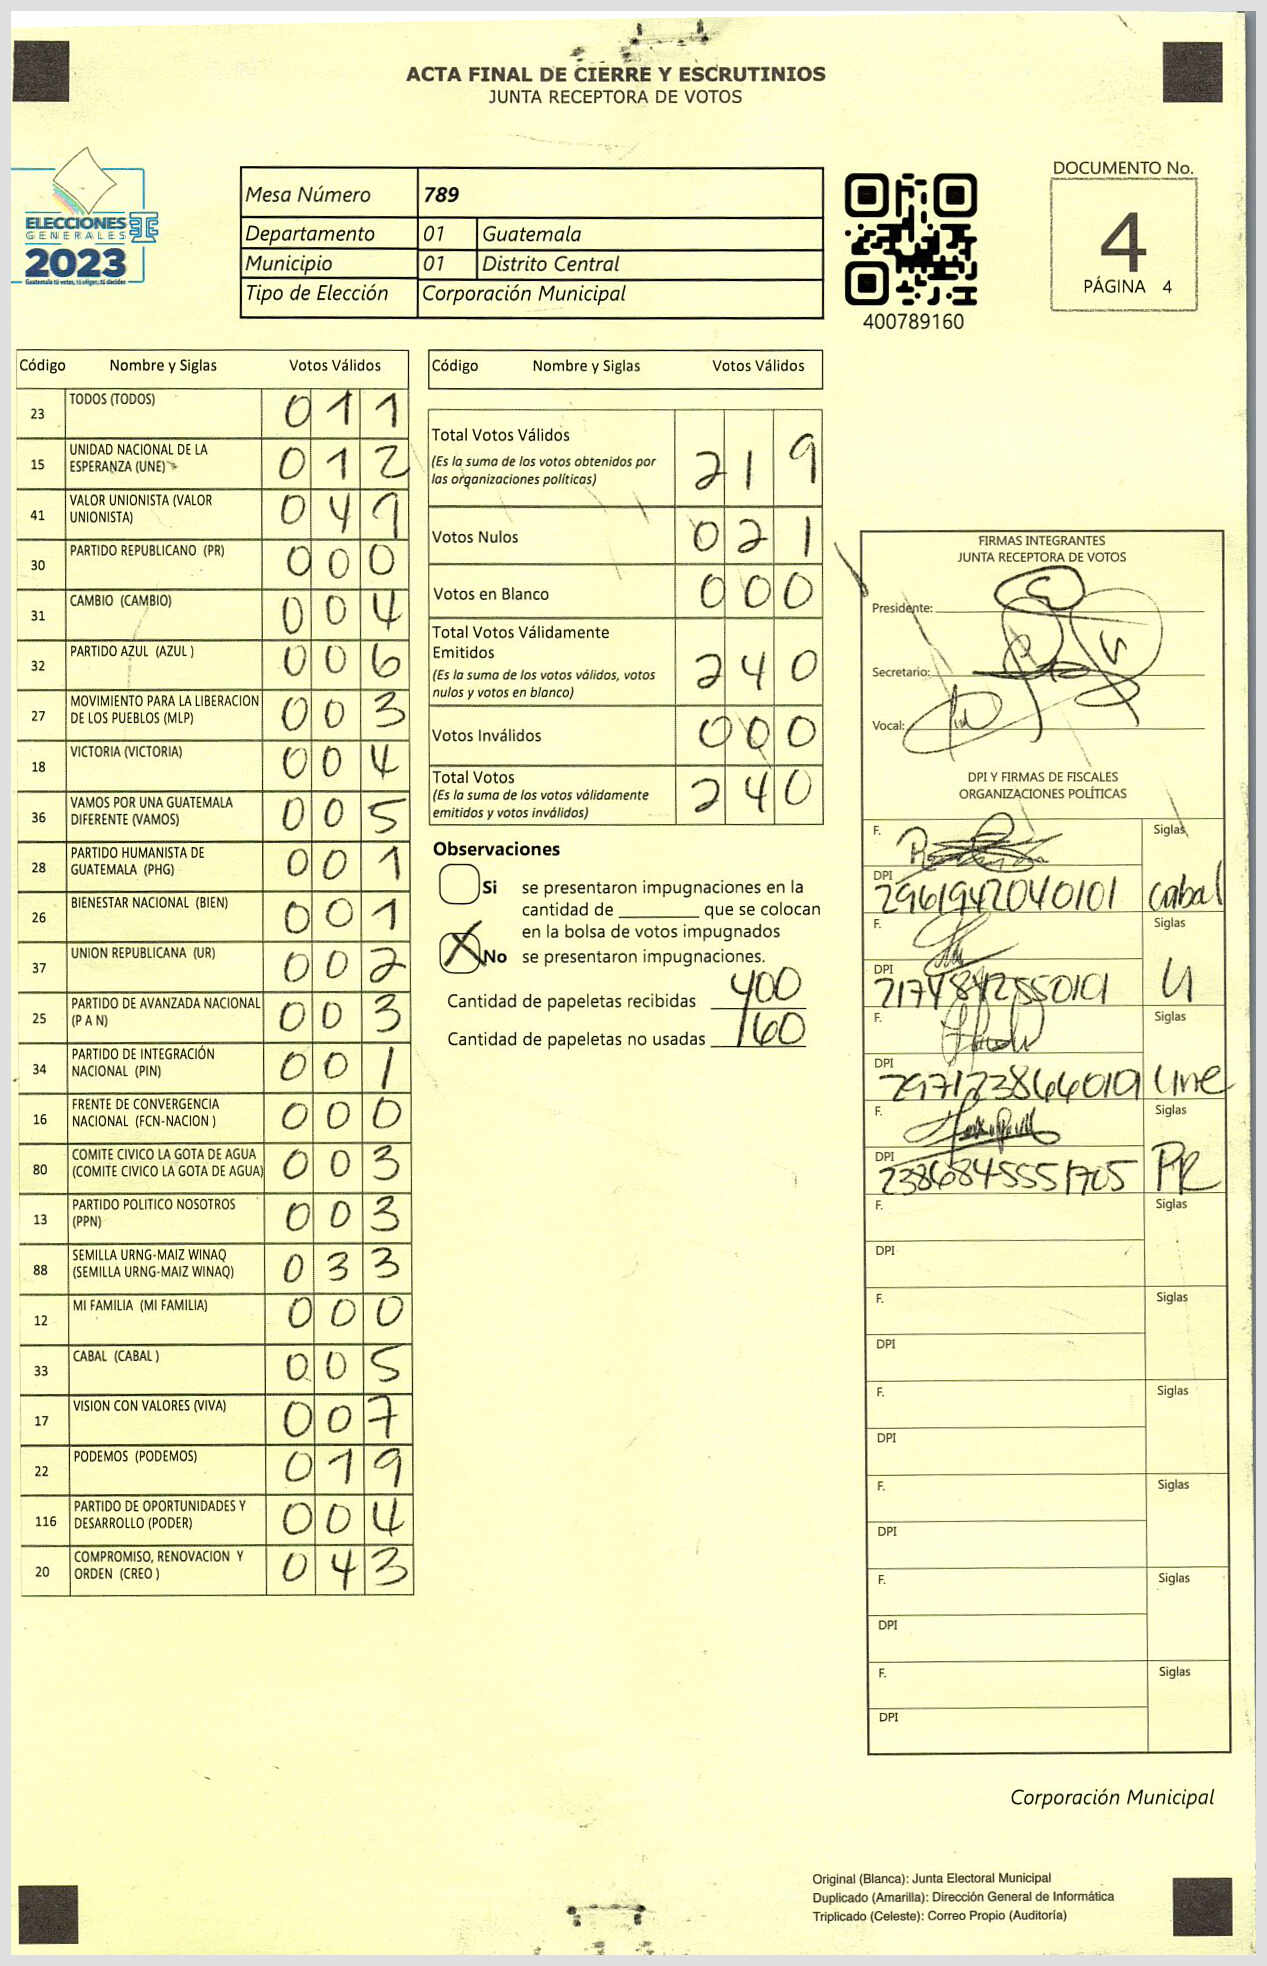 ACTA FINAL DE CIERRE Y ESCRUTINIOS
JUNTA RECEPTORA DE VOTOS
ELECCIONES
GENERALES
2023
Guatemala tú votas, tú eliges, tú decides
Mesa Número 789
Departamento 01 Guatemala
Municipio 01 Distrito Central
Tipo de Elección Corporación Municipal
400789160
DOCUMENTO No.
4
PÁGINA 4
Código Nombre y Siglas Votos Válidos
23 TODOS (TODOS) 0 1 1
15 UNIDAD NACIONAL DE LA
ESPERANZA (UNE) 0 1 2
41 VALOR UNIONISTA (VALOR
UNIONISTA) 0 4 9
30 PARTIDO REPUBLICANO (PR) 0 0 0
31 CAMBIO (CAMBIO) 0 0 4
32 PARTIDO AZUL (AZUL ) 0 0 6
27 MOVIMIENTO PARA LA LIBERACION
DE LOS PUEBLOS (MLP) 0 0 3
18 VICTORIA (VICTORIA) 0 0 4
36 VAMOS POR UNA GUATEMALA
DIFERENTE (VAMOS) 0 0 5
28 PARTIDO HUMANISTA DE
GUATEMALA (PHG) 0 0 1
26 BIENESTAR NACIONAL (BIEN) 0 0 1
37 UNION REPUBLICANA (UR) 0 0 2
25 PARTIDO DE AVANZADA NACIONAL
(P A N) 0 0 3
34 PARTIDO DE INTEGRACIÓN
NACIONAL (PIN) 0 0 1
16 FRENTE DE CONVERGENCIA
NACIONAL (FCN-NACION ) 0 0 0
80 COMITE CIVICO LA GOTA DE AGUA
(COMITE CIVICO LA GOTA DE AGUA) 0 0 3
13 PARTIDO POLITICO NOSOTROS
(PPN) 0 0 3
88 SEMILLA URNG-MAIZ WINAQ
(SEMILLA URNG-MAIZ WINAQ) 0 3 3
12 MI FAMILIA (MI FAMILIA) 0 0 0
33 CABAL (CABAL ) 0 0 5
17 VISION CON VALORES (VIVA) 0 0 7
22 PODEMOS (PODEMOS) 0 1 9
116 PARTIDO DE OPORTUNIDADES Y
DESARROLLO (PODER) 0 0 4
20 COMPROMISO, RENOVACION Y
ORDEN (CREO ) 0 4 3
Código Nombre y Siglas Votos Válidos
Total Votos Válidos
(Es la suma de los votos obtenidos por
las organizaciones políticas) 2 1 9
Votos Nulos 0 2 1
Votos en Blanco 0 0 0
Total Votos Válidamente
Emitidos
(Es la suma de los votos válidos, votos
nulos y votos en blanco) 2 4 0
Votos Inválidos 0 0 0
Total Votos
(Es la suma de los votos válidamente
emitidos y votos inválidos) 2 4 0
Observaciones
Si se presentaron impugnaciones en la
cantidad de ________ que se colocan
en la bolsa de votos impugnados
X No se presentaron impugnaciones.
Cantidad de papeletas recibidas 400
Cantidad de papeletas no usadas 160
FIRMAS INTEGRANTES
JUNTA RECEPTORA DE VOTOS
Presidente:
Secretario:
Vocal:
DPI Y FIRMAS DE FISCALES
ORGANIZACIONES POLÍTICAS
F. Siglas
DPI 2961942040101 Cabal
F. Siglas
DPI 2174842550101 U
F. Siglas
DPI 2971238660101 Une
F. Siglas
DPI 2386845551705 PR
F. Siglas
DPI
F. Siglas
DPI
F. Siglas
DPI
F. Siglas
DPI
F. Siglas
DPI
F. Siglas
DPI
Corporación Municipal
Original (Blanca): Junta Electoral Municipal
Duplicado (Amarilla): Dirección General de Informática
Triplicado (Celeste): Correo Propio (Auditoría)